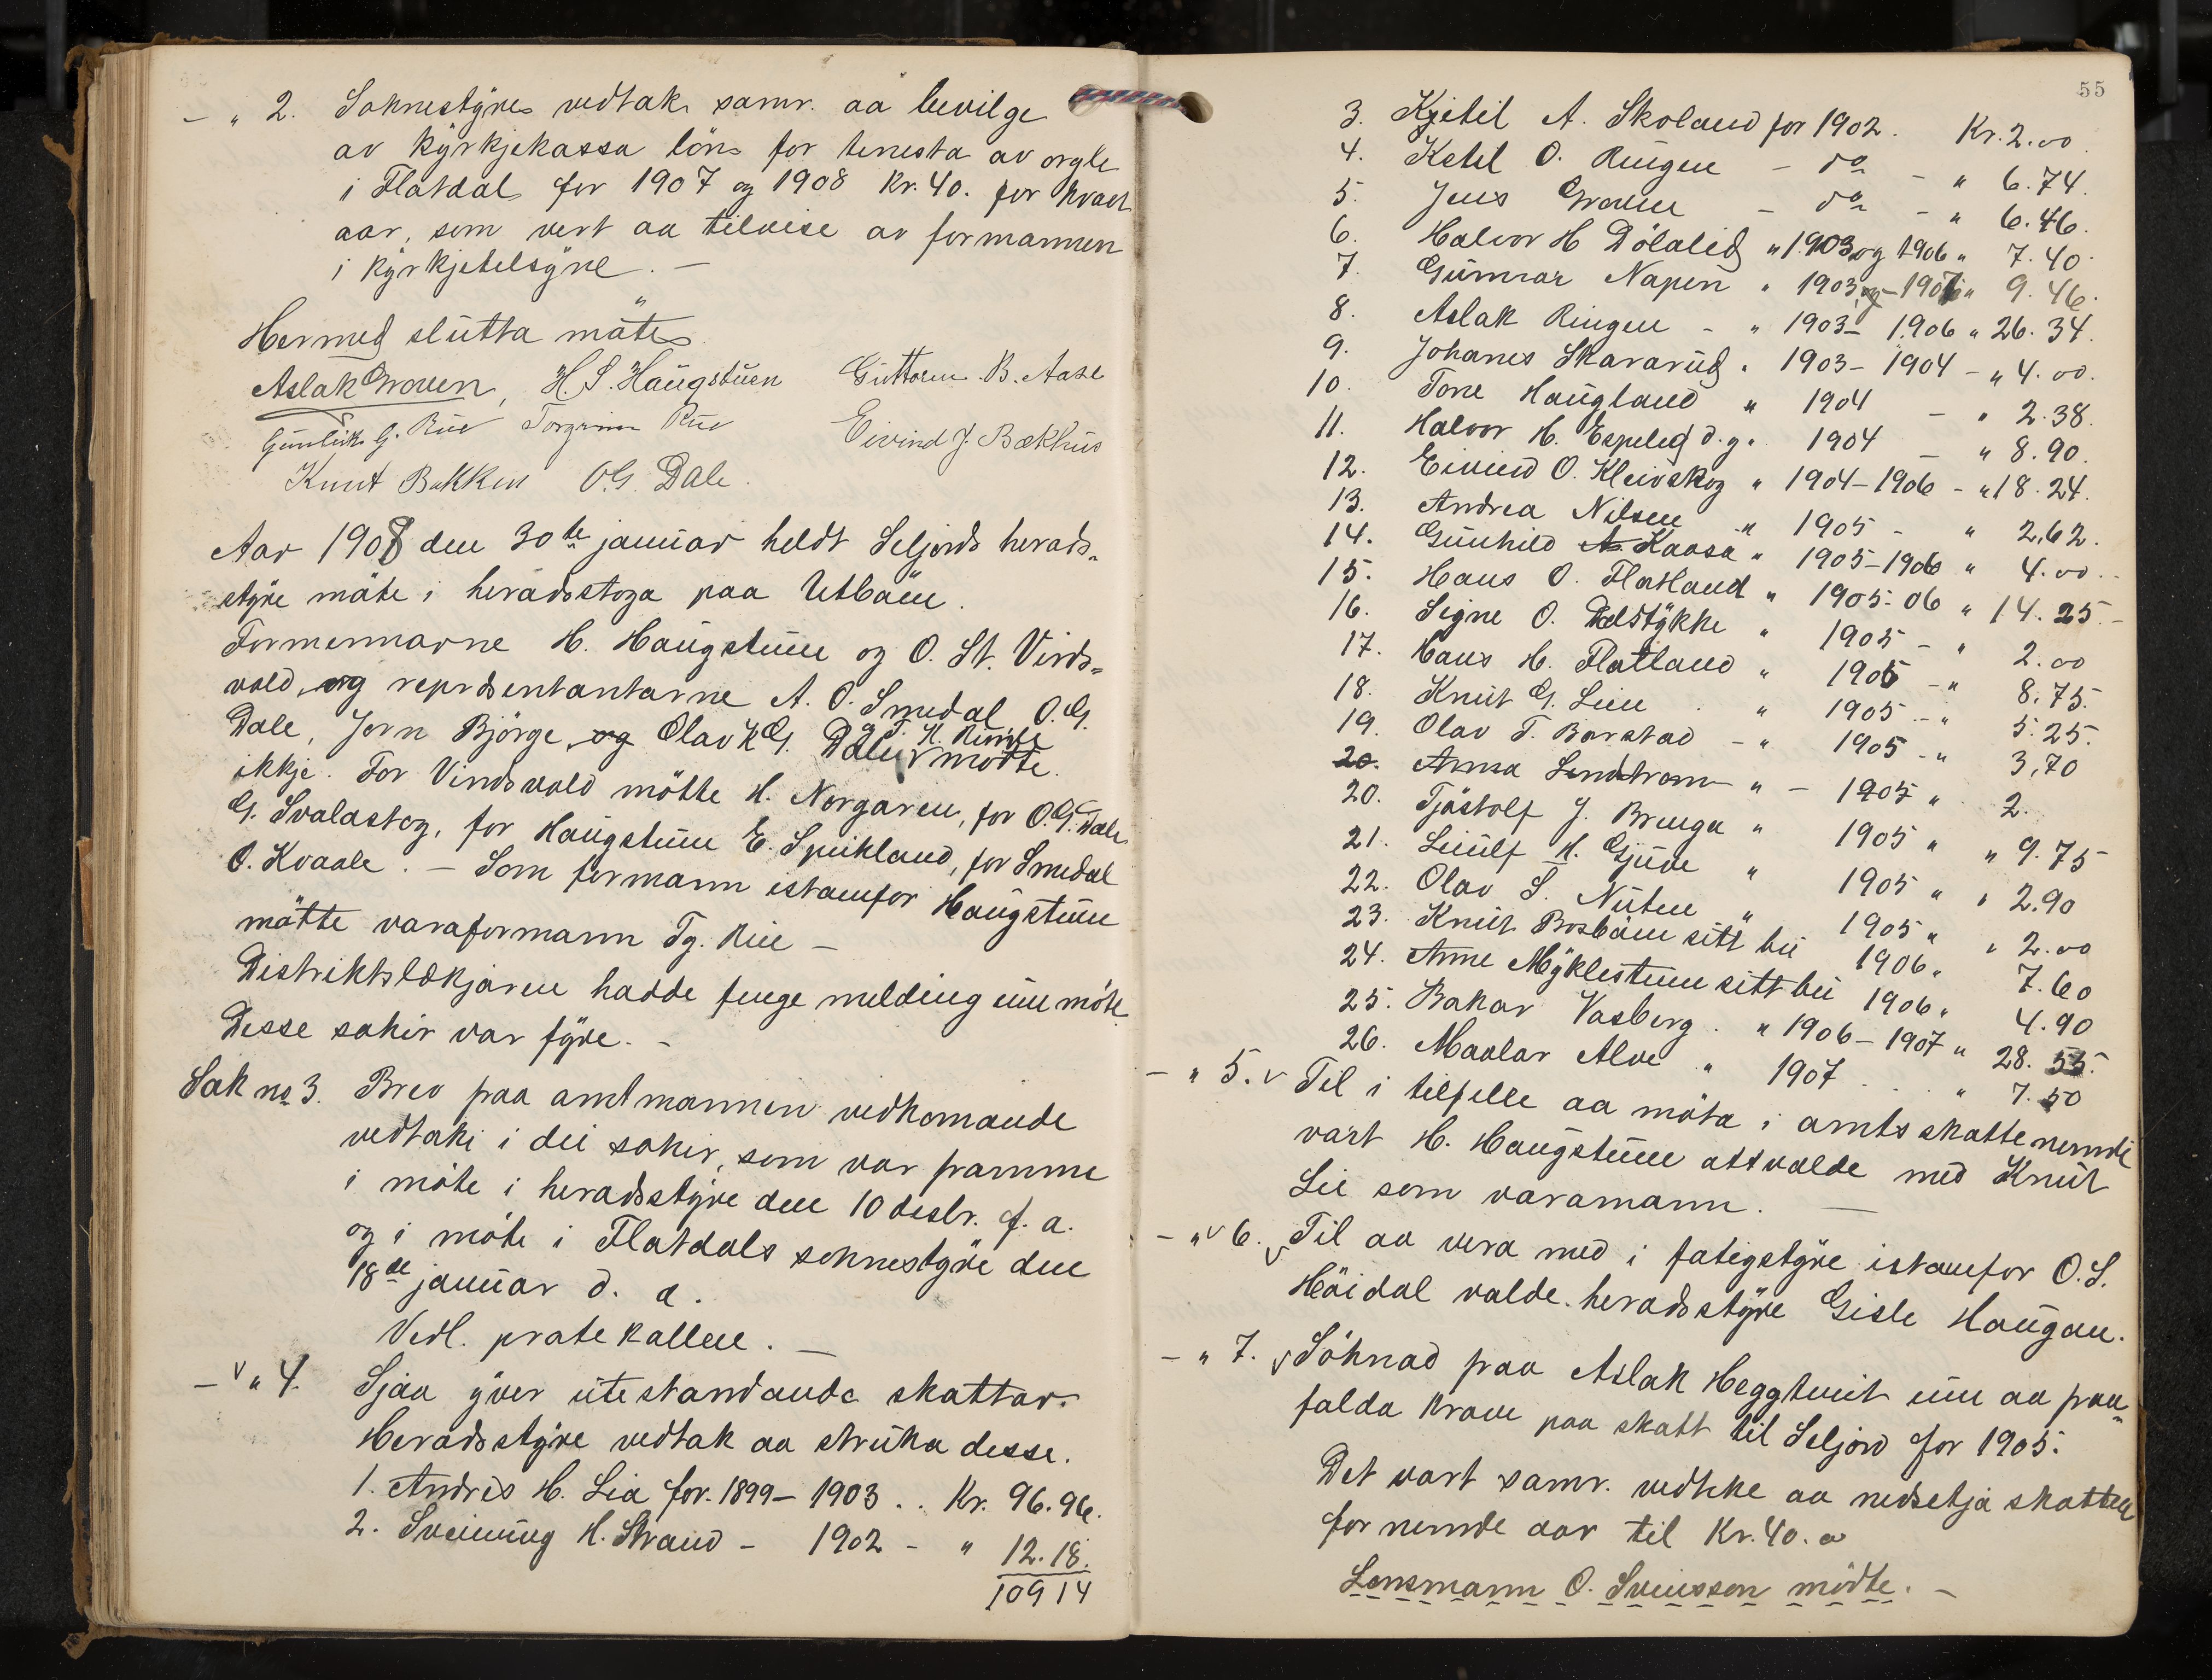 - " 2. Soknestyre vedtak samr. aa bevilge
av kyrkjekassa löns for tenesta av orgle
i Flatdal for 1907 og 1908 Kr. 40. for kvart
aar, som vert aa tilvise av formannen
i kyrkjetilsyne. -
Hermed slutta möte
Aslak Groven, H. S. Haugstuen Guttorm B. Aase
Gunleik G. Rue Torgrim Rue Eivind J. Bækhus
Knut Bakken O.G. Dale.
Aar 1908 den 30te januar heldt Seljords herads-
styre möte i heradsstoga paa Utbäen.
Formennarne H. Haugstuen og O. St. Vinds-
vold, og reprdsentantarne A. O. Smedal, O.G.
Dale, Jorn Björge, og Olav K G. Dale og T. H. Runde mötte
ikkje. For Vindsvold mötte H. Norgaren, for O.G. Dale
G. Svalastog, for Haugstuen E. Speikland, for Smedal
O. Kvaale. - Som formann istamfor Haugstuen
mötte varaformann Tg. Rue -
Distriktslækjaren hadde fenge melding um möte
Desse sakir var fyre. -
Sak no 3. Brev paa amtmannen vedkomande
vedtaki i dei sakir, som var framme
i möte i heradsstyre den 10 desbr. f. a.
og i möte i Flatdals soknestyre den
18de januar d. a.
Vedl. pratekallen. -
- " 4. Sjaa yver utestandande skattar.
Heradsstyre vedtak aa struka desse.
1. Andris H. Lia for. 1899 - 1903 .. Kr. 96.96.
2. Sveinung H. Strand - 1902 - " 12.18.
109 14
55
3. Kjetil A. Skoland for 1902. Kr. 2.00
4. Ketil O. Ringen - do - " 6.74.
5. Jens Groven - do - " 6.46.
6. Halvor H Dölalid " 1903 og 1906 " 7.40.
7. Gunnar Napen " 1903 og - 1907 " 9.46.
8. Aslak Ringen - " 1903 - 1906 " 26.34.
9. Johanes Skararud " 1903 - 1904 - " 4.00.
10. Tone Haugland " 1904 - " 2.38.
11. Halvor H. Espelid d.y. " 1904 - " 8.90.
12. Eivind O. Kleivskog " 1904 - 1906 - " 18.24.
13. Andrea Nilsen " 1905 - " 2,62.
14. Gunhild A Kaasa " 1905 - 1906 " 4.00.
15. Hans O. Flatland " 1905-06 " 14.25.-
16. Signe O. Dælstykke " 1905 - " 2.00
17. Hans H. Flatland " 1905 - " 8.75.
18. Knut G. Lien " 1905 - " 5.25.
19. Olav T. Barstad - " 1905 - " 3,70
20. Anna Lendstrom " - 1905 " 2.
20. Tjöstolf J. Brenga " 1905 " " 9.75
21. Leiulf H. Gjuve " 1905 " " 2.90
22. Olav S. Nuten " 1905 " " 2.00
23. Knut Bosbäen sitt bu 1906 " 7.60
24. Anne Myklestuen sitt bu 1906 " 4.90
25. Bakar Vasberg. " 1906 - 1907 " 28.55.
26. Maalar Alve " 1907 . . . " 7.50
- " 5. Til i tilfelle aa möta i amtsskattenemdi
vart H. Haugstuen attvalde med Knut
Lie som varamann. -
- " 6. Til aa vera med i fatigstyre istamfor O.S.
Höidal valde heradsstyre Gisle Haugan.
- " 7. Söknad paa Aslak Heggtveit um aa fraa-
falda krave paa skatt til Seljord for 1905.
Det vart samr. vedteke aa nedsetja skatten
for nemde aar til Kr. 40.00
Lensmann O. Sveinsson mödte. -